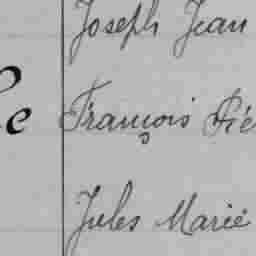 Joseph Jean
François
Jules Marie